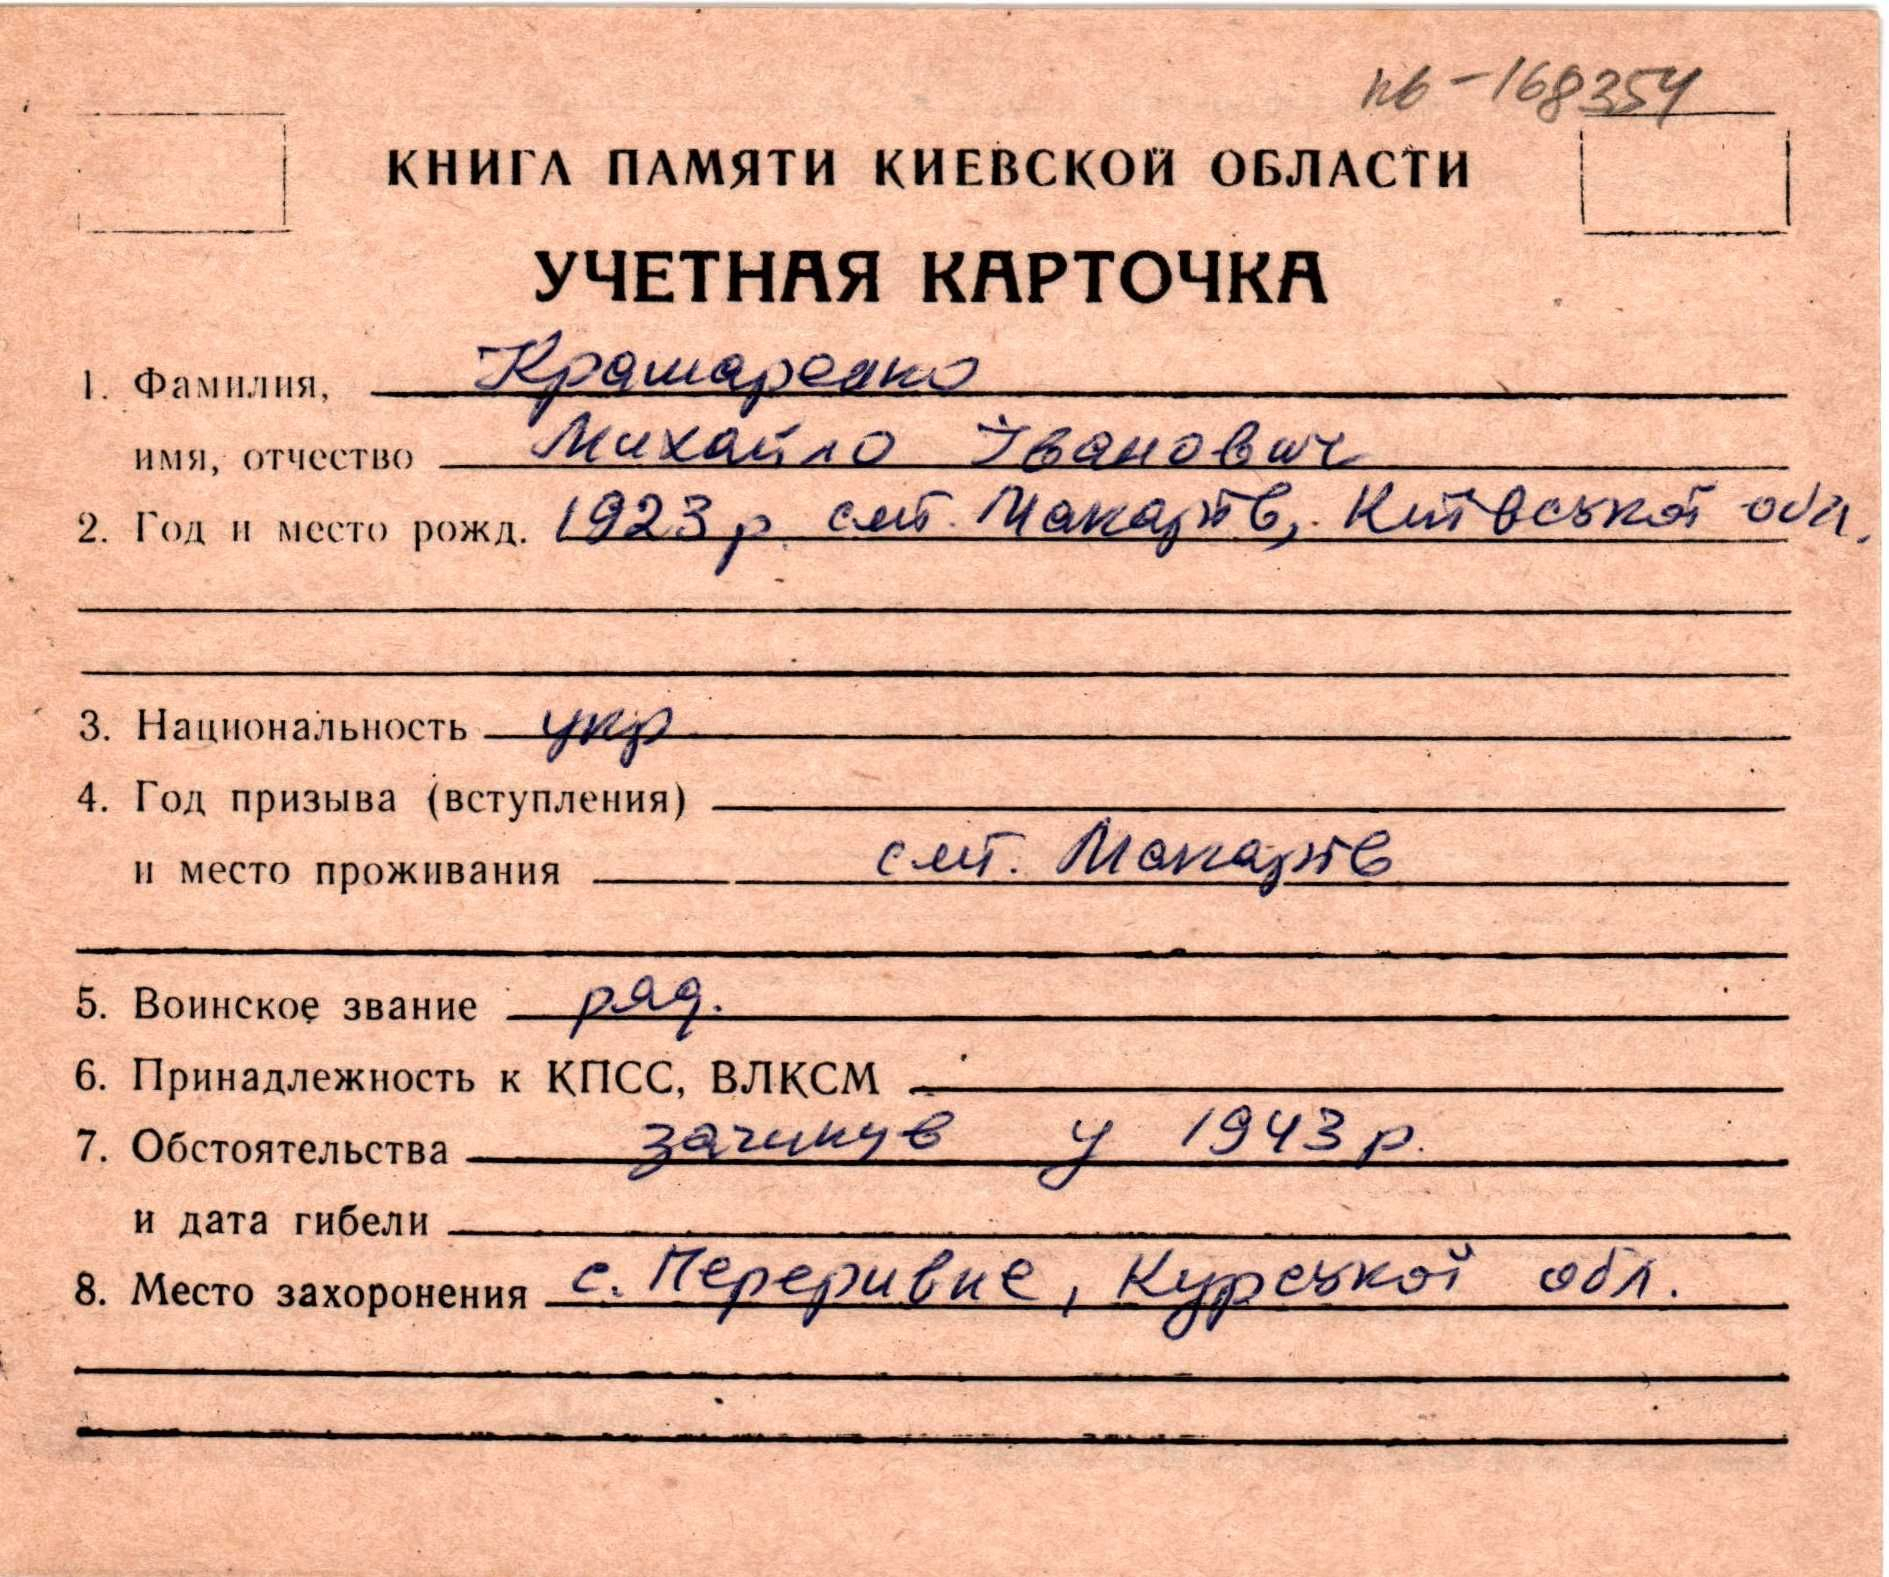 нб-168354
КНИГА ПАМЯТИ КИЕВСКОЙ ОБЛАСТИ
УЧЕТНАЯ КАРТОЧКА
1. Фамилия, Крамаренко
имя, отчество Михайло Іванович
2. Год и место рожд. 1923 р. смт. Макарів, Київської обл.
3. Национальность укр
4. Год призыва (вступления)
и место проживания смт. Макарів
5. Воинское звание ряд.
6. Принадлежность к КПСС, ВЛКСМ
7. Обстоятельства загинув у 1943 р.
и дата гибели
8. Место захоронения с. Перeривне, Курської обл.